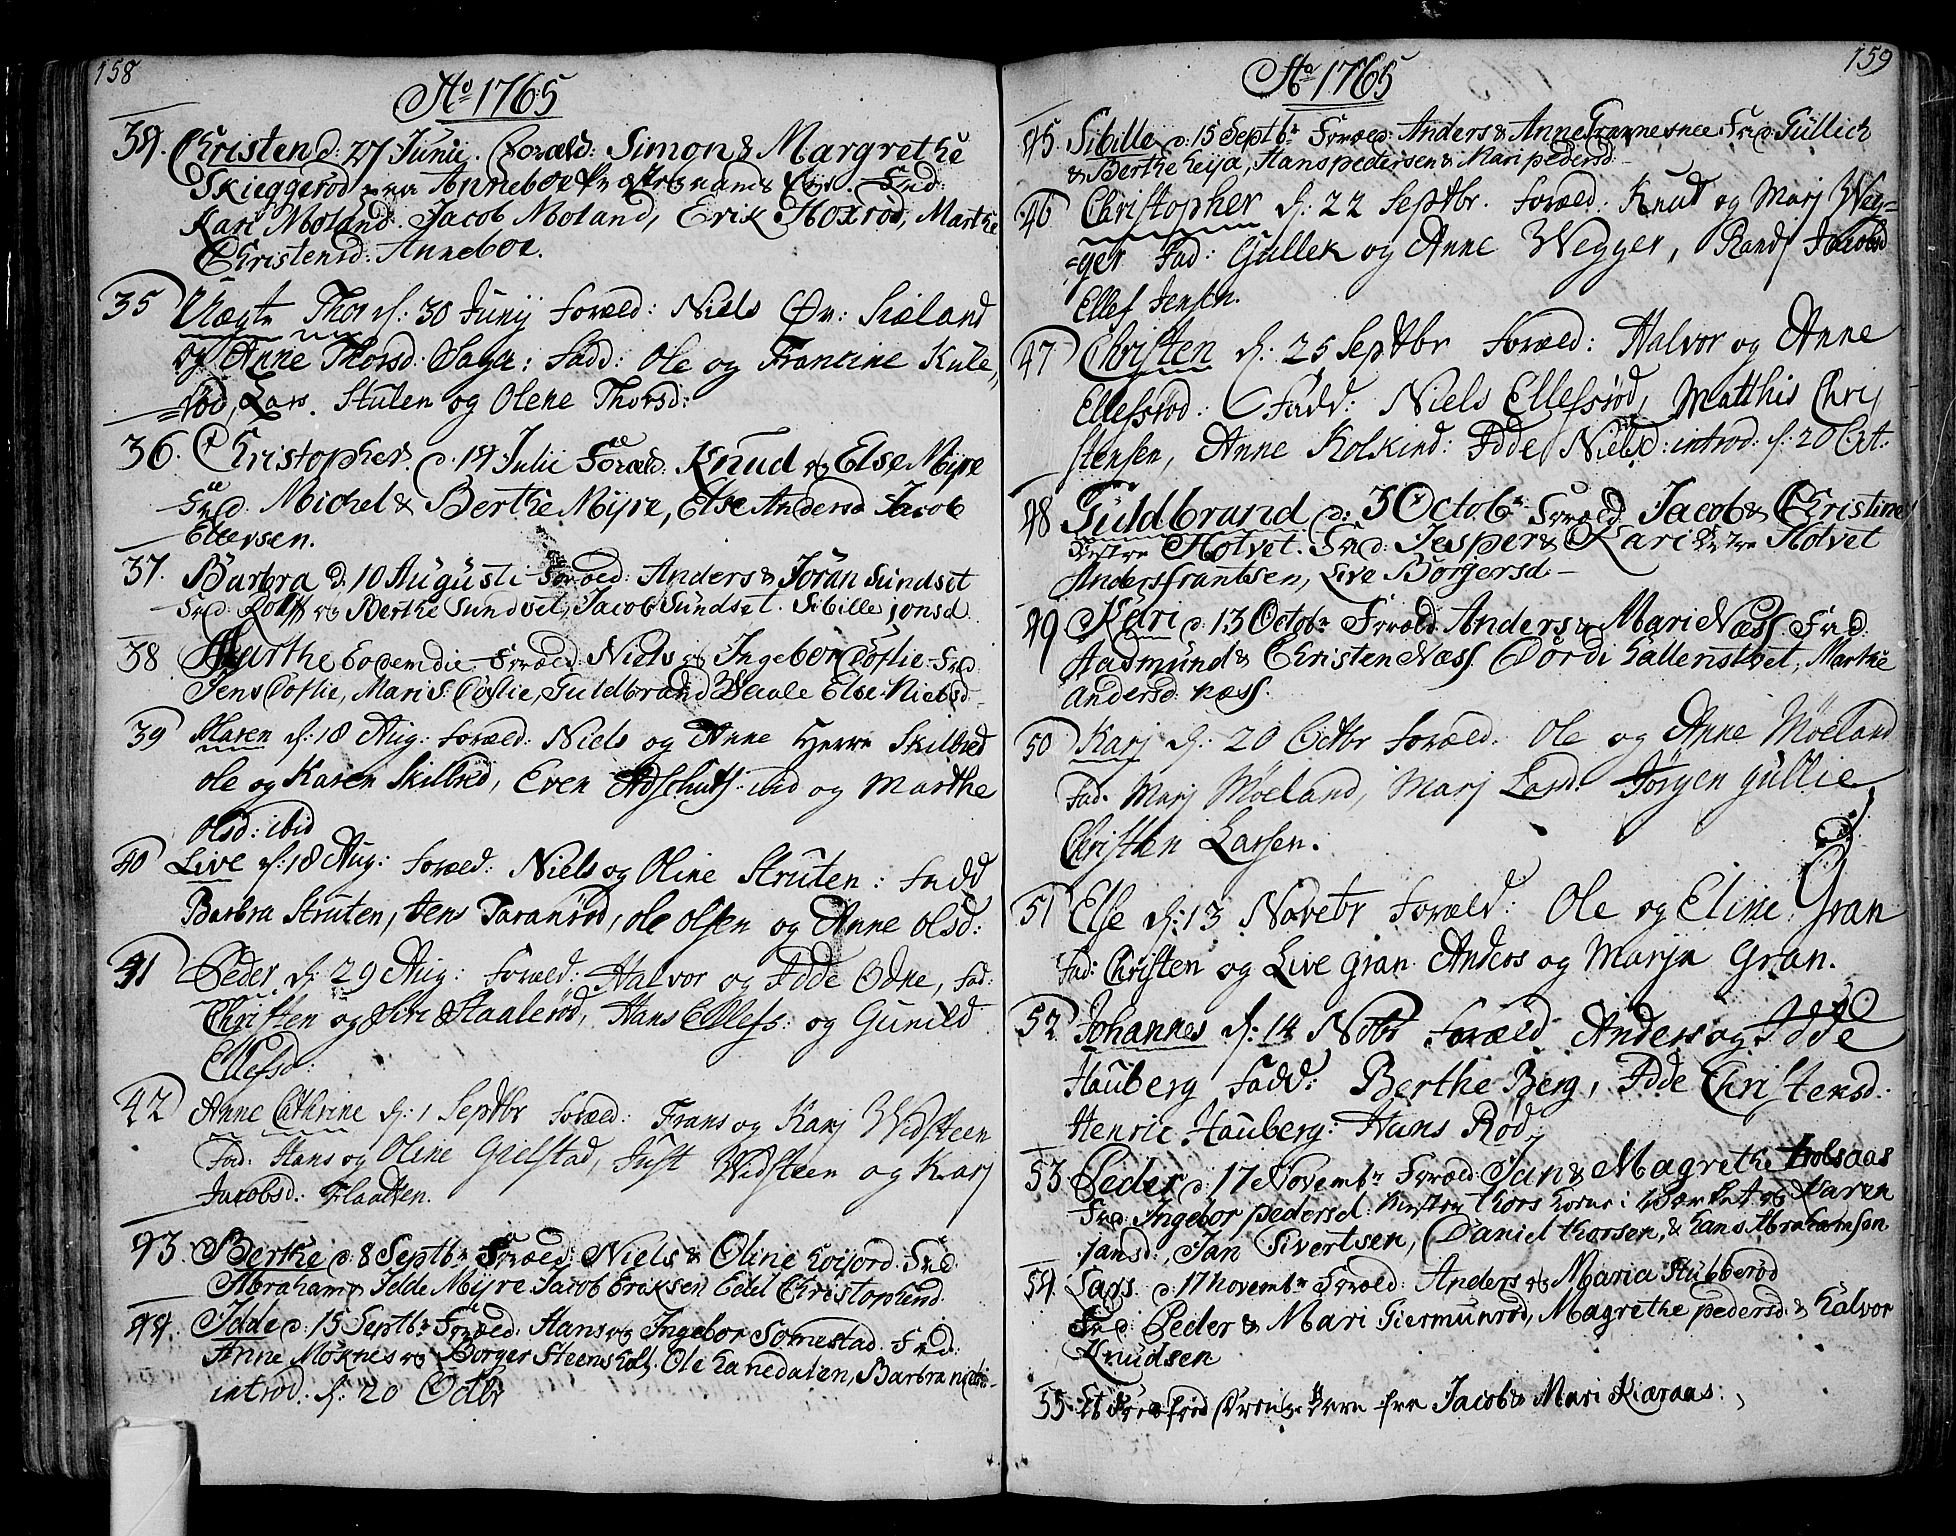 158
Ao 1765
34. Christen d. 27 Junii. Foræld: Simon & Margrethe
Skieggerød Anneboe Fad:
Kari Moland. Jacob Moland, Erik Hoxrød, Marthe
Christensd: Anneboe.
35 Uægte Thor d. 30 Junij foræld: Niels Siæland
og Anne Thorsd: Saga: fadd: Ole og Francine Kule,
=rød, Lars Stulen og Olene Thorsd:
36. Christopher. d. 14 Julii Foræld: Knud og Else Mijre
Fad. Michel & Berthe Mijre, Else Andersd Jacob
Ellevsen.
37. Barbra d. 10 Augusti Foræld: Anders & Joran Sundset
Fad: Rolff og Berthe Sundset, Jacob Sundset. Sibille jonsd
38 Marthe eodem die Foræld: Niels og Ingebor Coflie Fad
Jens Coflie, Mari S: Coflie, Guldbrand Else Nielsd
39 Maren d. 18 Aug: foræld: Niels og Anne Skilbred
ole og Karen Skilbred, Even ibid og Marthe
Olsd: ibid
40 Live d: 18 Aug: foræld: Niels og Oline Struten: fadd
Barbra Struten, Jens Taranrød, ole olsen og Anne olsd:
41 Peder d: 29 Aug: foræld: Halvor og Idde Odne, fad:
Christen og Siri Staalerød, Hans Ellefs: og Gunild
Ellefsd:
42 Anne Cathrine d: 1 Septbr foræld: Frans og Karj Widsteen
Fad: Hans og Oline Gielstad, Just Widsteen og Karj
Jacobsd: Flaatten.
43. Berthe d. 8 Septbr Foræld: Niels & Oline Fad
Abraham & Idde Mijre Jacob Eriksen Edel Christophersd
44. Idde d. 15 Septbr Foræld: Hans og Ingebor Somestad. Fad:
Anne Moknes og Borger Steensholt, Ole hanedalen, Barbra
introd. d: 20 Octbr
159
Ao 1765
45. Sibille d. 15 Septbr Foræld: Anders & Anne Grannesnes Fad Gullich
& Berthe heija, Hans pedersen & Mari pedersd
46 Christopher d: 22 Septbr. foræld: Knut og Marj Weg=
=ger Fad: Gullek og Anne Wegger, Randj Jacobsd
Ellef Jensen.
47 Christen d: 25 Septbr foræld: Halvor og Anne
Ellefsrød. Fadd: Niels Ellefsrød, Matthis Chri
stensen, Anne Kolkind: Idde Nielsd: introd: d: 20 Oct.
48 Guldbrand d: 3 Octobr Foræld Jacob & Christine
Vestre Holvet. Fad: Jesper & Kari Vestre Holvet
Anders frantsen, Live Borgersd
49 Kari d. 13 Octobr Foræld: Anders & Mari Næss Fad
Aasmund & Christen Næss. Dordi hallenstvet, Marthe
Andersd: næss.
50 Karj d. 20 Octbr foræld. Ole og Anne Möeland
Fad. Marj Möeland, Marj Larsd. Jörgen Gullie
Christen Larsen.
51 Else d: 13 Novebr foræld: Ole og Eline Gran
Fad: Christen og Live gran Anders og Marja Gran.
52 Johannes d: 14 Nobr foræld Anders og Idde
Hauberg Fadd: Berthe Berg, Idde Christensd.
Henric Hauberg: Hans Rød
53 Peder d. 17 Novembr Foræld Jan & Magrethe holsaas
Fad: Ingebor pedersd: Thors Værket og Karen
jansd, Jan Sivertsen, Daniel thorsen, & hans Abrahamsen
54 Lars. d. 17 novembr Foræld: Anders og Maria Stubberød
Fad: Peder & Mari Giermunrød, Magrethe pedersd: & halvor
Knudsen
55. Et Barn fra Jacob & Mari Kiæraas.